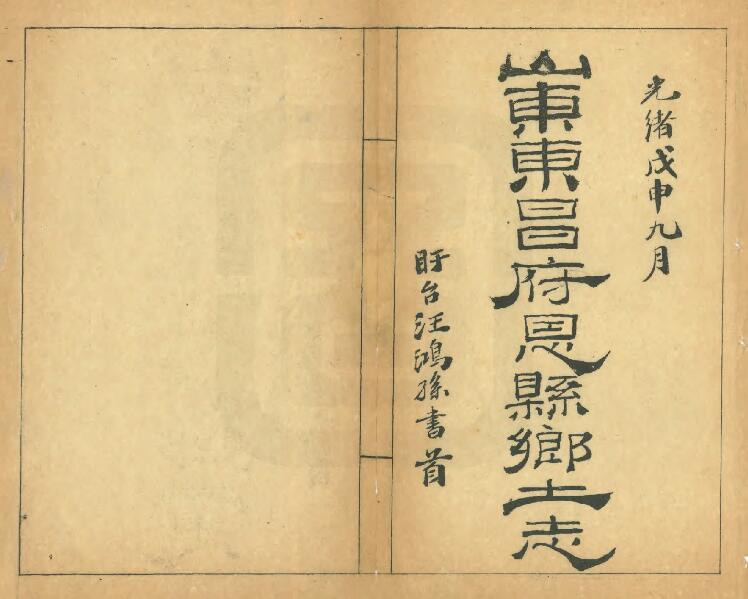 光緒戊申九月
山東東昌府恩縣鄉土志
盱台汪鴻孫書首